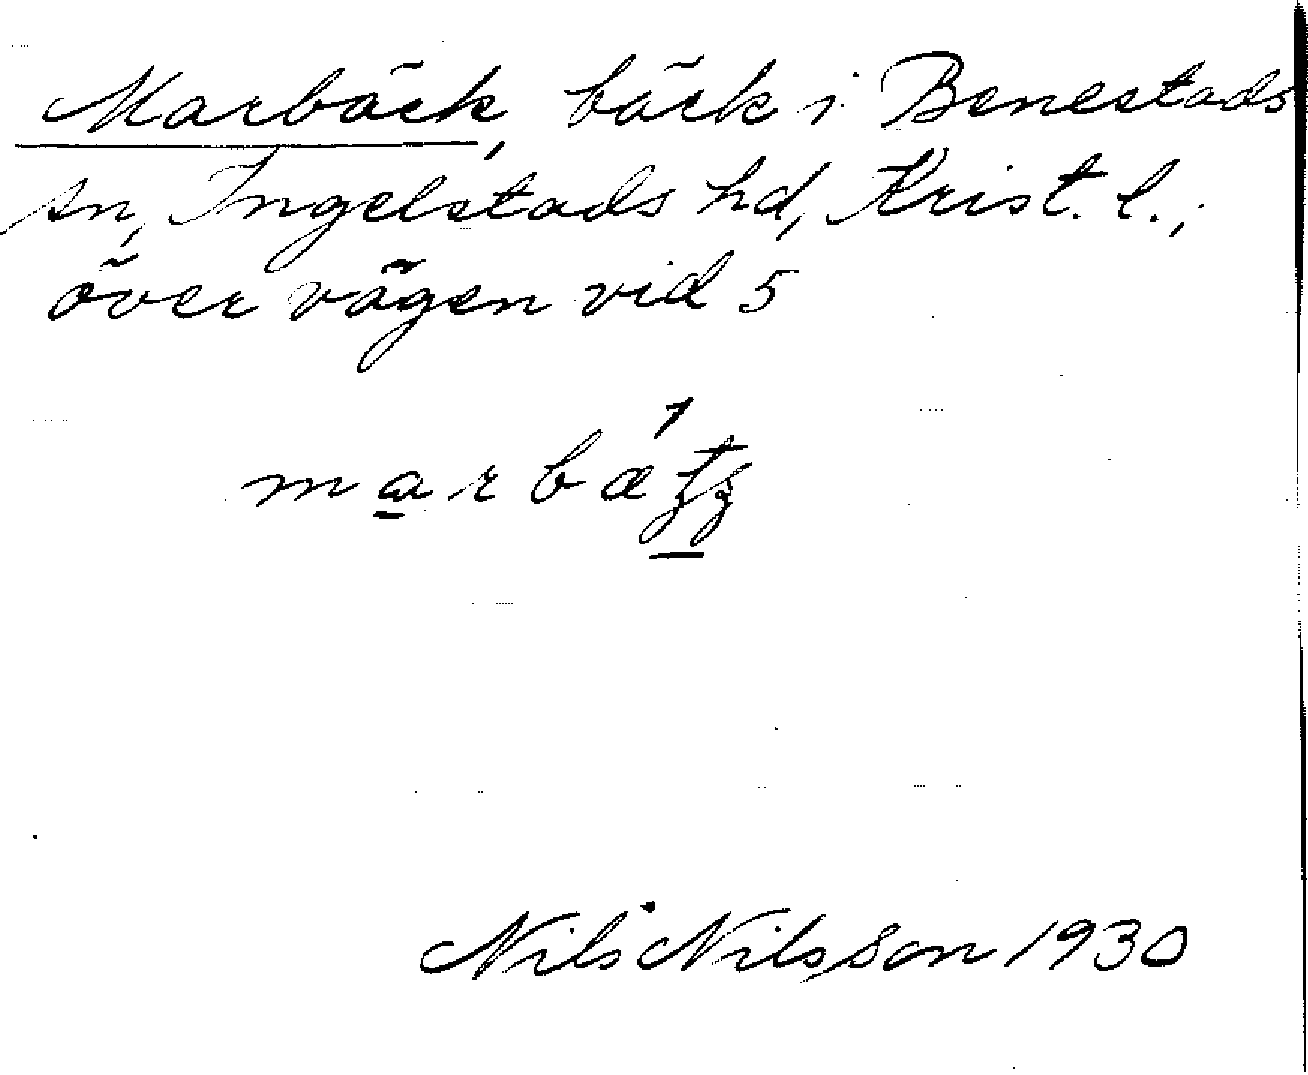 Marbäck, bäck i Benestads
sn, Ingelstads hd, Krist. l.,
över vägen vid 5
Nils Nilsson 1930